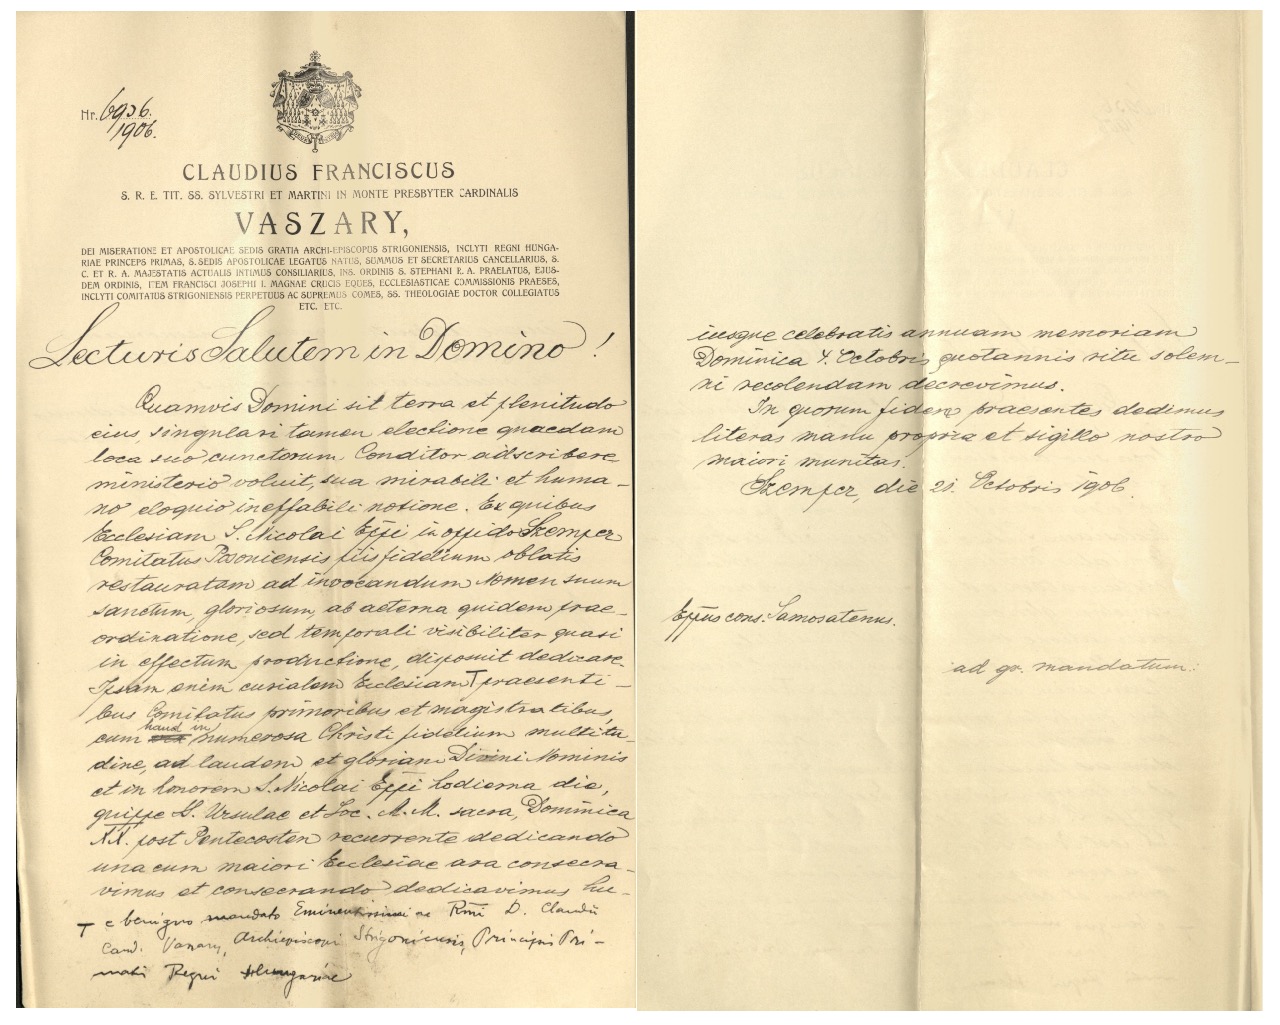 Nr. 6936.
1906.
CLAUDIUS FRANCISCUS
S. R. E. TIT. SS. SYLVESTRI ET MARTINI IN MONTE PRESBYTER CARDINALIS
VASZARY,
DEI MISERATIONE ET APOSTOLICAE SEDIS GRATIA ARCHI-EPISCOPUS STRIGONIENSIS, INCLYTI REGNI HUNGA-
RIAE PRINCEPS PRIMAS, S. SEDIS APOSTOLICAE LEGATUS NATUS, SUMMUS ET SECRETARIUS CANCELLARIUS, S.
C. ET R. A. MAJESTATIS ACTUALIS INTIMUS CONSILIARIUS, INS. ORDINIS S. STEPHANI R. A. PRAELATUS, EJUS-
DEM ORDINIS, ITEM FRANCISCI JOSEPHI I. MAGNAE CRUCIS EQUES, ECCLESIASTICAE COMMISSIONIS PRAESES,
INCLYTI COMITATUS STRIGONIENSIS PERPETUUS AC SUPREMUS COMES, SS. THEOLOGIAE DOCTOR COLLEGIATUS
ETC. ETC.
Lecturis Salutem in Domino!
Quamvis Domini sit terra et plenitudo
eius, singulari tamen electione quaedam
loca suo cunctorum Conditor adscribere
ministerio voluit, sua mirabili et huma-
no eloquio ineffabili notione. Ex quibus
Ecclesiam S. Nicolai Eppi in oppido Szempcz
Comitatus Posoniensis piis fidelium oblatis
restauratam ad invocandum Nomen suum
sanctum, gloriosum ab aeterna quidem prae-
ordinatione, sed temporali visibiliter quasi
in effectum productione, disposuit dedicare.
Ipsam enim curialem Ecclesiam T praesenti-
bus Comitatus primoribus et magistratibus,
cum haud in numerosa Christi fidelium multitu-
dine, ad laudem et gloriam Divini Nominis
et in honorem S. Nicolai Eppi hodierna die,
quippe S. Ursulae et Soc. M. M. sacra, Dominica
XX. post Pentecosten recurrente dedicando
una cum maiori Ecclesiae ara consecra-
vimus et consecrando dedicavimus hu-
T e benigno mandato Eminentissimi ac Rmi D. Claudii
Card. Vaszary, Archiepiscopi Strigoniensis, Principis Pri-
matis Regni Hungariae
iusque celebratis annuam memoriam
Dominica 4. Octobris quotannis ritu solem-
ni recolendam decrevimus.
In quorum fidem praesentes dedimus
literas manu propria et sigillo nostro
maiori munitas.
Szempcz, die 21. Octobris 1906.
Eppus cons. Samosatenus.
ad gr. mandatum: